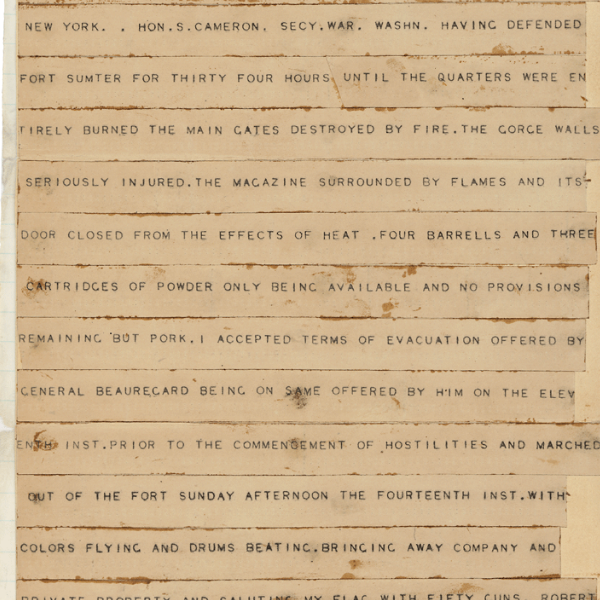 NEW YORK. . HON.S.CAMERON. SECY.WAR. WASHN. HAVING DEFENDED
FORT SUMTER FOR THIRTY FOUR HOURS UNTIL THE QUARTERS WERE EN
TIRELY BURNED THE MAIN GATES DESTROYED BY FIRE.THE GORGE WALLS
SERIOUSLY INJURED.THE MAGAZINE SURROUNDED BY FLAMES AND ITS
DOOR CLOSED FROM THE EFFECTS OF HEAT .FOUR BARRELLS AND THREE
CARTRIDGES OF POWDER ONLY BEING AVAILABLE AND NO PROVISIONS
REMAINING BUT PORK.I ACCEPTED TERMS OF EVACUATION OFFERED BY
GENERAL BEAUREGARD BEING ON SAME OFFERED BY HIM ON THE ELEV
ENTH INST.PRIOR TO THE COMMENSEMENT OF HOSTILITIES AND MARCHED
OUT OF THE FORT SUNDAY AFTERNOON THE FOURTEENTH INST.WITH
COLORS FLYING AND DRUMS BEATING.BRINGING AWAY COMPANY AND
PRIVATE PROPERTY AND SALUTING MY FLAG WITH FIFTY GUNS. ROBERT